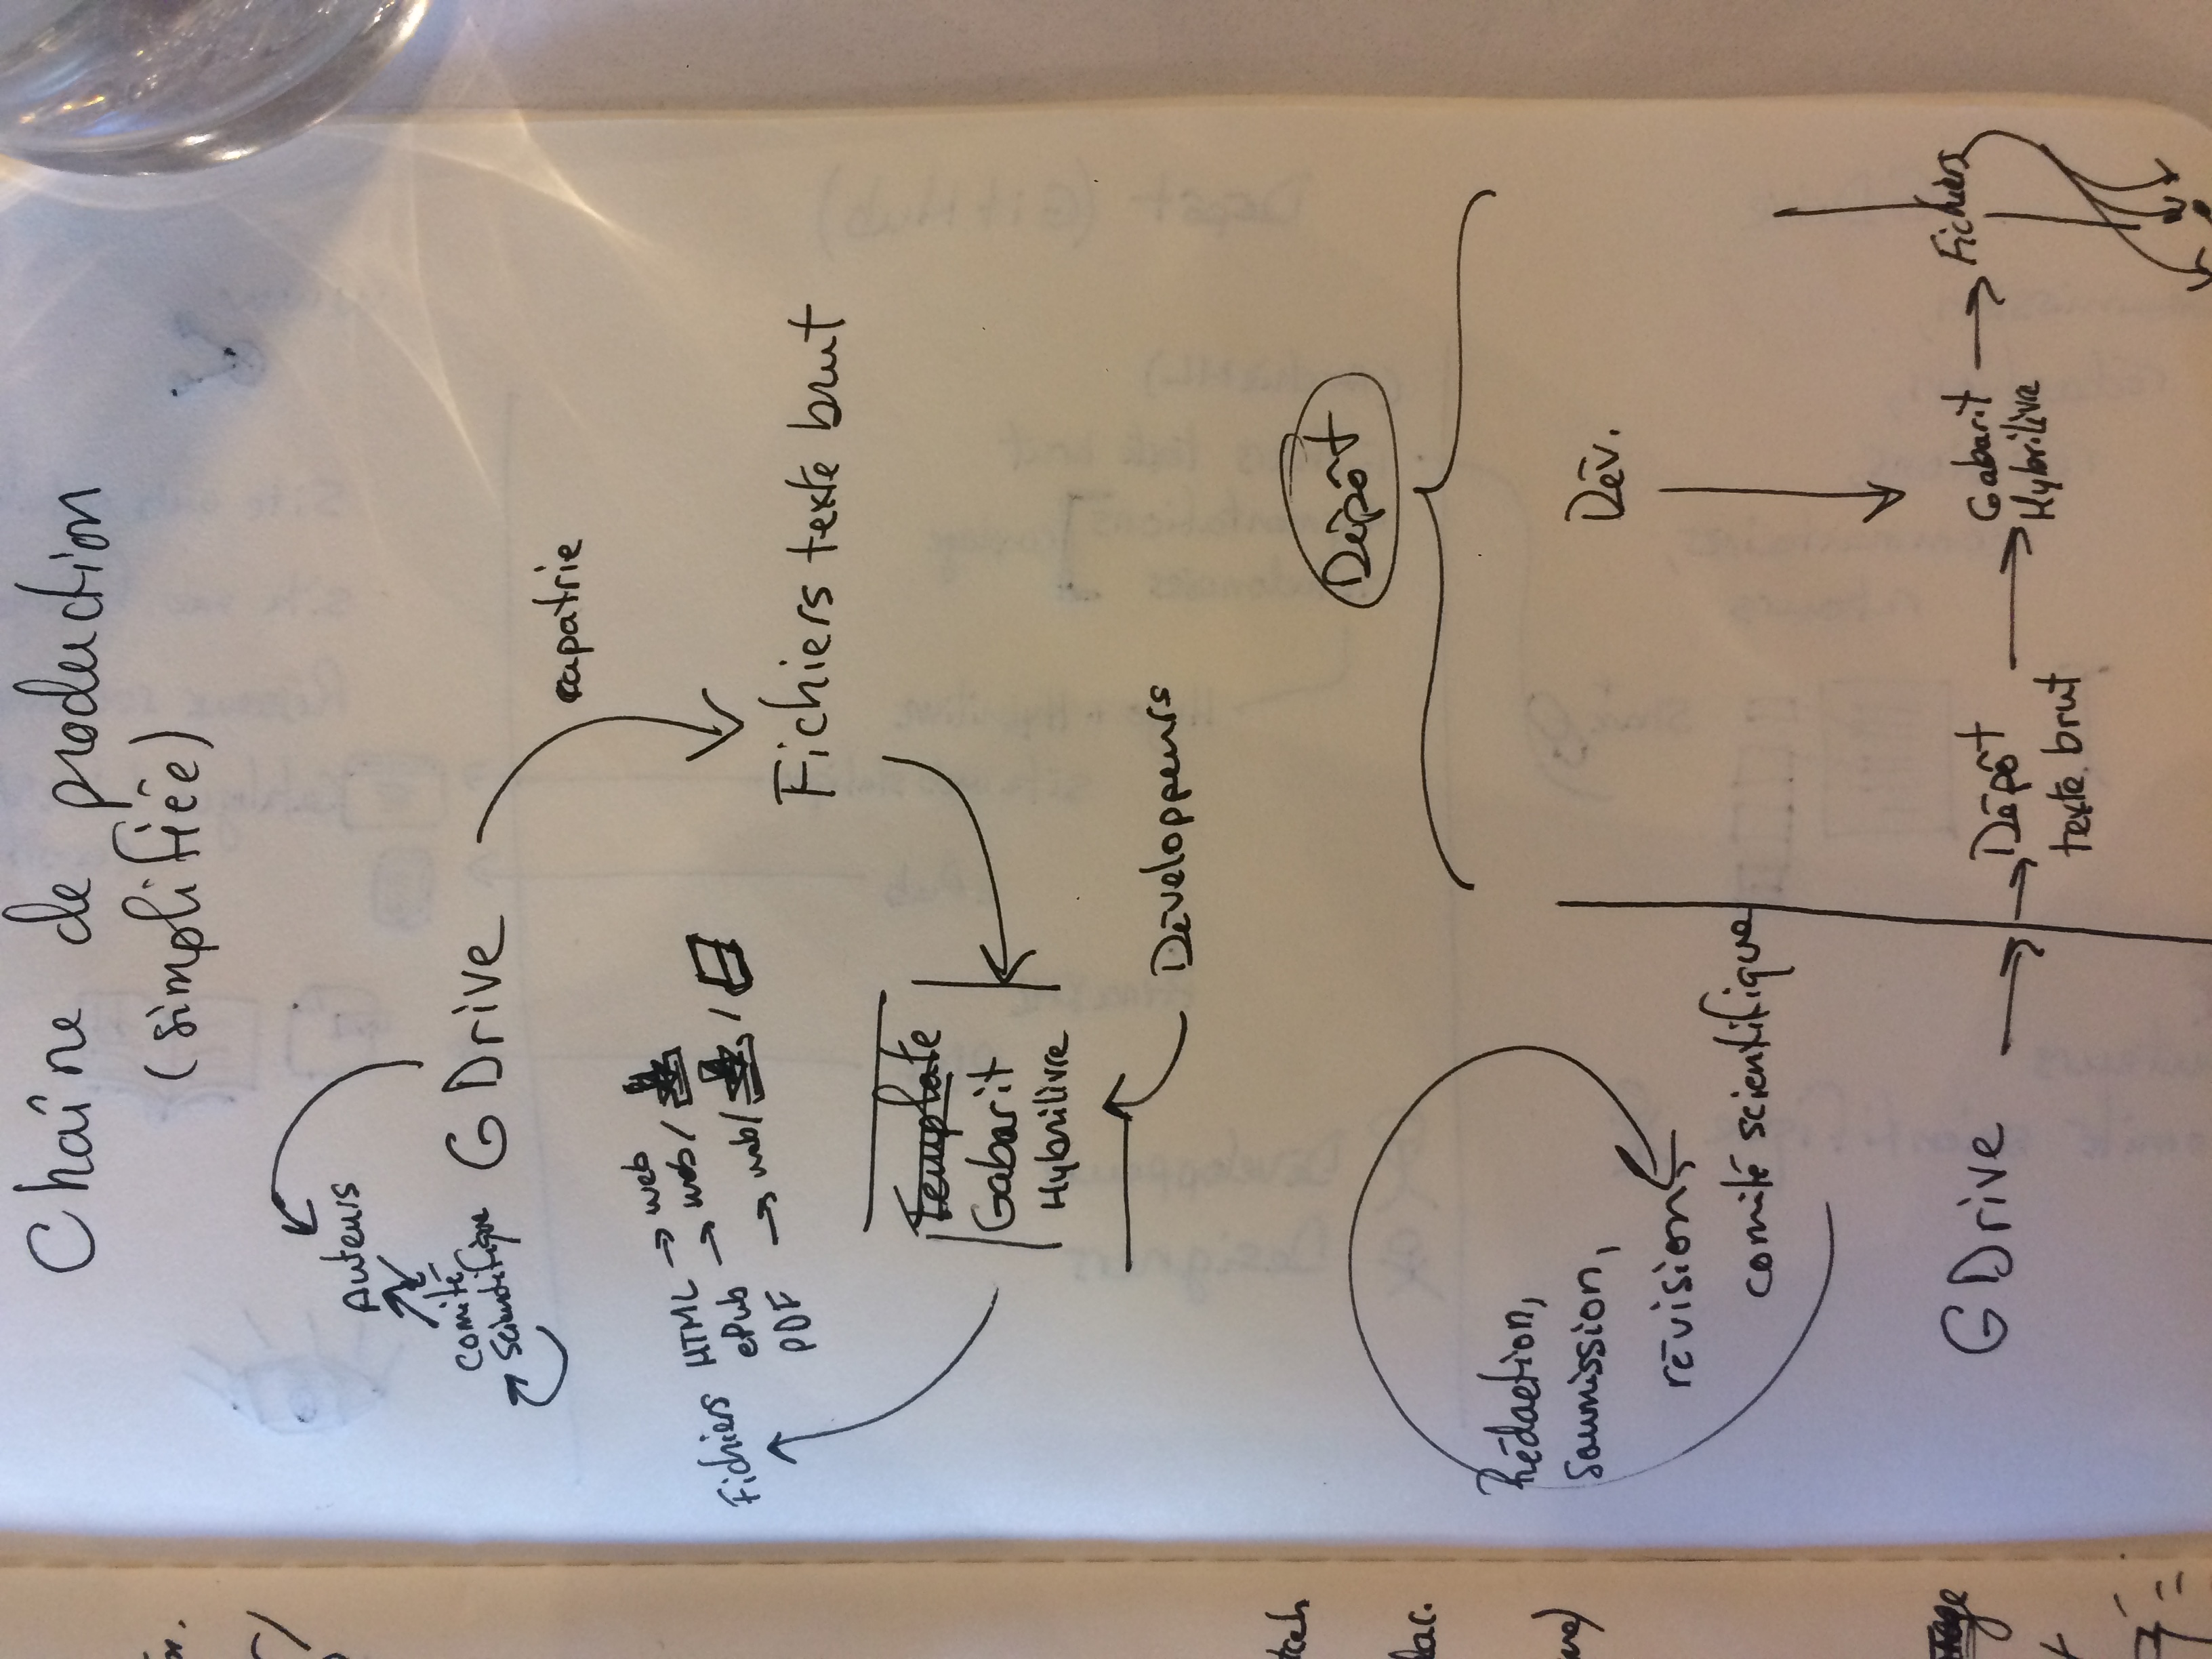 Chaîne de production
(simplifiée)
Auteurs
Comité
Scientifique
G Drive
rapatrie
Fichiers HTML → web
ePub → web /
PDF → web / /
Fichiers texte brut
Template
Gabarit
Hybrilivre
Développeurs
Dépôt
Rédaction,
Soumission,
révision,
comité scientifique
Dév.
G Drive
Dépôt
texte brut
Gabarit
Hybrilivre
Fichiers